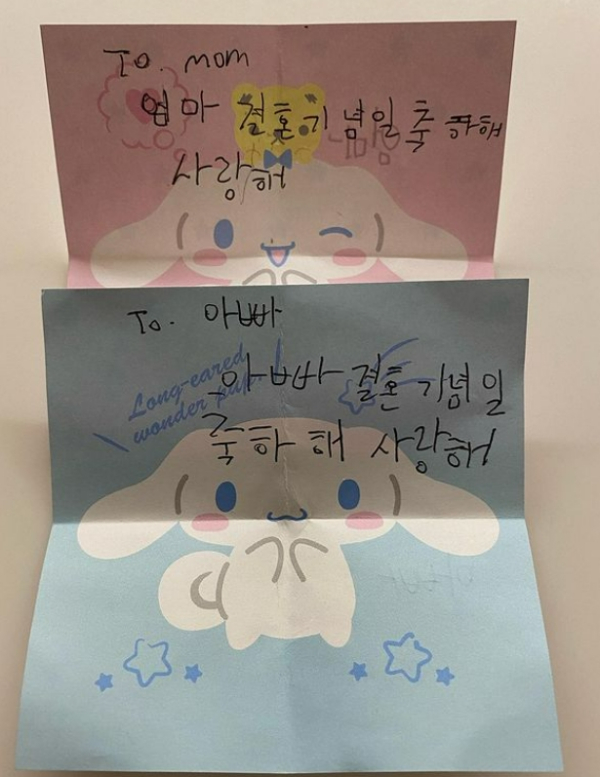 To. mom
엄마 결혼기념일 축하해
사랑해
To. 아빠
Long-eared
wonder pup.
아빠 결혼기념일
축하해 사랑해